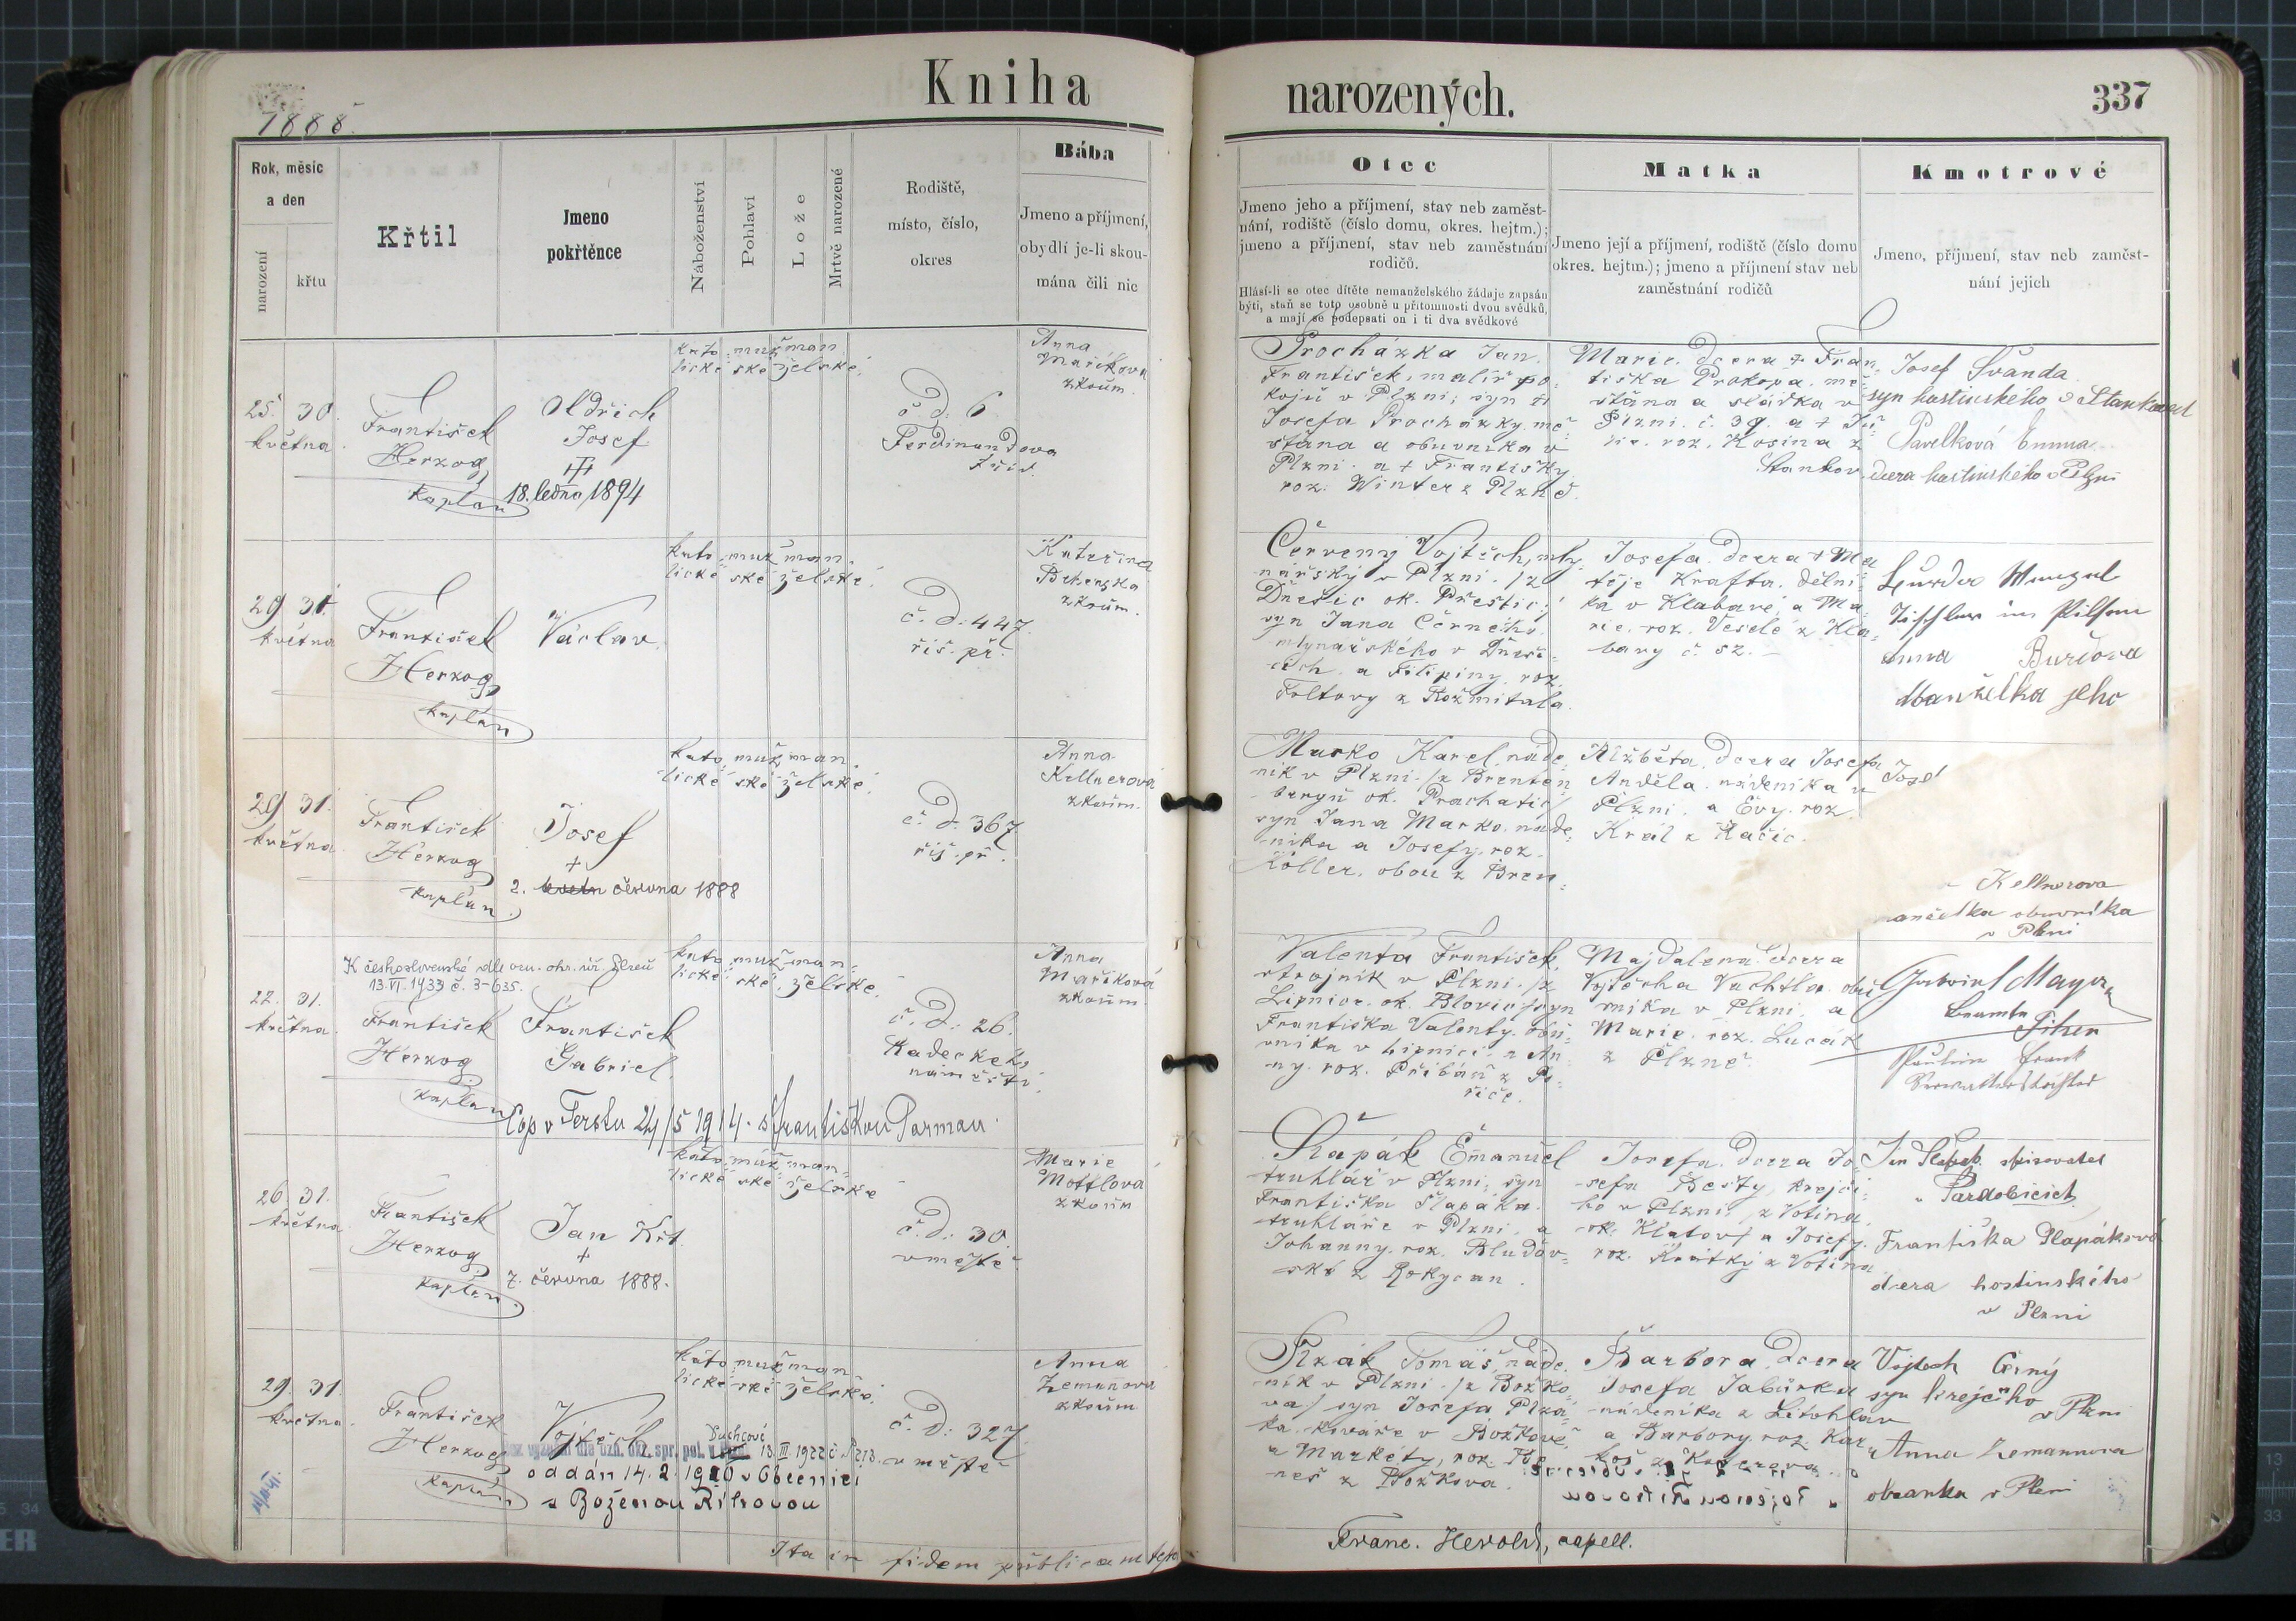 Kniha
narozených.
337
1888.
Rok, měsíc
a den
narození
křtu
Křtil
Jmeno
pokřtěnce
Náboženství
Pohlaví
Lože
Mrtvě narozené
Rodiště,
místo, číslo,
okres
Bába
Jmeno a příjmení,
obydlí je-li skou-
mána čili nic
Otec
Jmeno jeho a příjmení, stav neb zaměst-
nání, rodiště (číslo domu, okres. hejtm.);
jmeno a příjmení, stav neb zaměstnání
rodičů.
Hlásí-li se otec dítěte nemanželského žádaje zapsán
býti, staň se toto osobně u přítomnosti dvou svědků,
a mají se podepsati on i ti dva svědkové
Matka
Jmeno její a příjmení, rodiště (číslo domu
okres. hejtm.); jmeno a příjmení stav neb
zaměstnání rodičů
Kmotrové
Jmeno, příjmení, stav neb zaměst-
nání jejich
25. 30.
května
František
Herzog
kaplan
Oldřich
Josef
18. ledna 1894
kato muž man
lické ské želské
č. d. 6
Ferdinandova
Anna
Maříkova
zkoum.
Procházka Jan
František, malíř po-
kojů v Plzni; syn
Josefa Procházky mě-
šťana a obuvníka v
Plzni a + Františky
roz. Winter z Plzně.
Marie, dcera + Fran-
tiška Prokopa, mě-
šťana a sládka v
Plzni č. 39. a +
roz. Kosina z
Stankov
Josef Švanda
syn hostinského v Stankově
Pavelková Emma
dcera hostinského v Plzni
29 31.
května
František
Herzog
kaplan
Václav.
kato muž man
lické ské želské
č. d. 447.
říš. př.
Kateřina
zkoum.
Červený Vojtěch, mly-
nářský v Plzni /z
Dnešic ok. Přeštic/
syn Jana Černého
mlynářského v Dneši-
cích a Filipiny roz.
Foltovy z Rožmitala.
Josefa, dcera + Ma-
těje Krafta, dělní-
ka v Klabavě, a Ma-
rie, roz. Veselé z Kla-
bavy č. 52.
Tischler in Pilsen
Anna Burdova
Manželka jeho
29 31.
května
František
Herzog
kaplan
Josef
+
2. června 1888
kato muž man
lické ské želské
č. d. 367
říš. př.
Anna
Kellnerová
zkoum.
Marko Karel, náde-
ník v Plzni /z Brenten-
ok. Prachatic/
syn Jana Marko, náde-
níka a Josefy, roz.
Köller, obou z Bren-
Alžběta, dcera Josefa
Anděla, nádeníka v
Plzni, a Evy, roz.
Král z Račic.
Josef
Kellnerova
manželka obuvníka
v Plzni
K československé
13.VI.1933 č. 3-635.
22. 31.
května
František
Herzog
kaplan
František
Gabriel
kato muž man
lické ské želské
č. d. 26.
Radeckého
náměstí
Anna
Maříková
zkoum
Cop v Terstu 24/5 1914. s Františkou Parmau
Valenta František,
strojník v Plzni /z
Lipnice ok. Blovic/ syn
Františka Valenty, obu-
vníka v Lipnici a An-
ny, roz. Přibáň z Po-
říče.
Majdalena, dcera
Vojtěcha Vachtla, obu-
vníka v Plzni, a
Marie, roz. Lucák
z Plzně.
Gabriel Mayer
Beamter
Frank
26. 31.
května
František
Herzog
kaplan
Jan Křt.
+
7. června 1888.
kato muž man
lické ské želské
č. d. 30.
v městě
Marie
Mottlová
zkoum
Šlapák Emanuel
truhlář v Plzni, syn
Františka Šlapáka
truhláře v Plzni, a
Johanny, roz. Bludov-
ské z Rokycan.
Josefa, dcera Jo-
sefa Besty, krejčí-
ho v Plzni, /z Votína,
ok. Klatov/ a Josefy,
roz. Krátký z Votína
Jan Šlapák
v Pardubicích
Františka Šlapáková
dcera hostinského
v Plzni
29. 31.
května
František
Herzog
kaplan
Vojtěch
kato muž man
lické ské želské
č. d. 327
v městě
Anna
Zemanova
zkoum
Duchcově
13. III 1922 č.
oddán 14. 2. 1920 v Obecnici
s Boženou Říhovou
Plzák Tomáš, náde-
ník v Plzni /z Božko-
va/ syn Josefa Plzá-
ka, kováře v Božkově,
a Markéty, roz. Be-
neš z Božkova.
Barbora, dcera
Josefa Jabůrka
nádeníka z Litohlav
a Barbory, roz.
Vojtěch Černý
syn krejčího
v Plzni
Anna Zemannova
obecanka v Plzni
Ita in fidem publicam
Franc. Herold, capell.